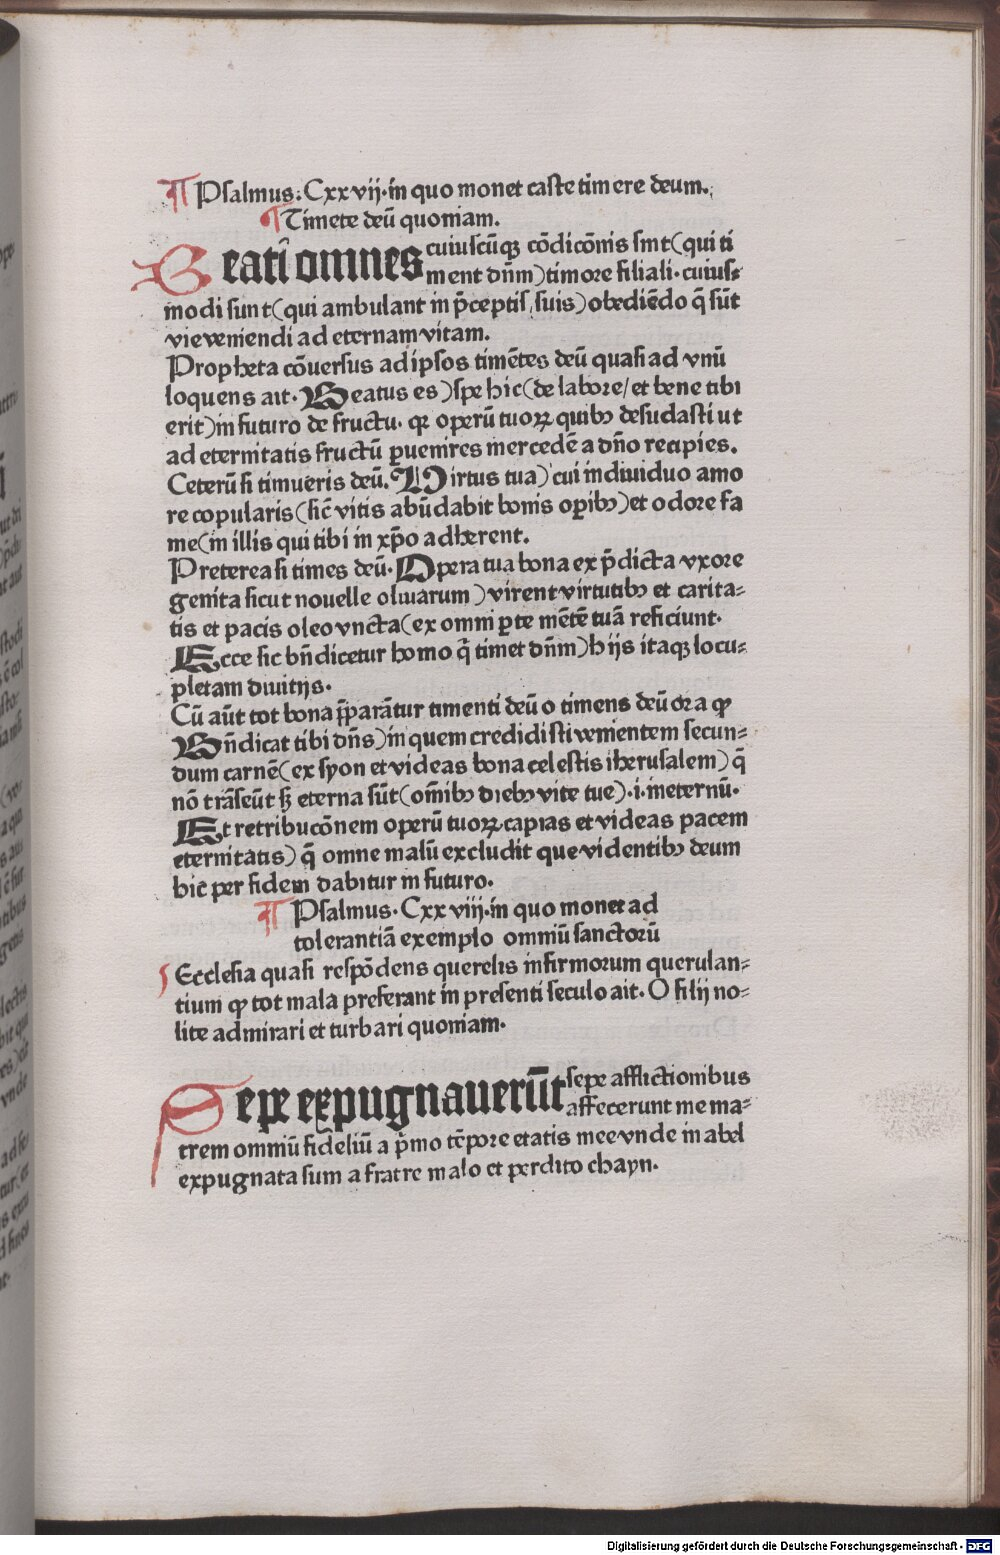 ¶ Psalmus. Cxxvij. in quo monet caste timere deum.
¶ Timete deū quoniam.
Beati omnes cuiuscūqꝫ cōdicōnis sint (qui ti
ment dn̄m) timore filiali. cuius⸗
modi sunt (qui ambulant in p̄ceptis suis) obediēdo q̄ sūt
vie veniendi ad eternam vitam.
Propheta cōuersus ad ipsos timētes deū quasi ad vnū
loquens ait. Beatus es) spe hic (de labore / et bene tibi
erit) in futuro de fructu. qꝛ operū tuoꝝ quibꝰ desudasti ut
ad eternitatis fructū ꝑuenires mercedē a dn̄o recipies.
Ceterū si timueris deū. Virtus tua) cui indiuiduo amo
re copularis (sic̄ vitis abūdabit bonis oꝑibꝰ) et odore fa
me (in illis qui tibi in xp̄o adherent.
Preterea si times deū. Opera tua bona ex p̄dicta vxore
genita sicut nouelle oliuarum) virent virtutibꝰ et carita⸗
tis et pacis oleo vncta (ex omni ꝑte mētē tuā reficiunt.
Ecce sic bn̄dicetur homo q̄ timet dn̄m) hijs itaqꝫ locu⸗
pletam diuitijs.
Cū aūt tot bona p̄parātur timenti deū o timens deū oꝛa ꝙ
Bn̄dicat tibi dn̄s) in quem credidisti venientem secun⸗
dum carnē (ex syon et videas bona celestis iherusalem) q̄
nō trāseūt sꝫ eterna sūt (om̄ibꝰ diebꝰ vite tue) .i. ineternū.
Et retribucōnem operū tuoꝝ capias et videas pacem
eternitatis) q̄ omne malū excludit que videntibꝰ deum
hic per fidem dabitur in futuro.
¶ Psalmus. Cxxviij. in quo monet ad
tolerantiā exemplo omniū sanctorū
Ecclesia quasi respōdens querelis infirmorum querulan⸗
tium ꝙ tot mala preferant in presenti seculo ait. O filij no⸗
lite admirari et turbari quoniam.
Sepe expugnauerūt sepe afflictionibus
affecerunt me ma⸗
trem omniū fideliū a p̄mo tēpore etatis mee vnde in abel
expugnata sum a fratre malo et perdito chayn.
Digitalisierung gefördert durch die Deutsche Forschungsgemeinschaft - DFG